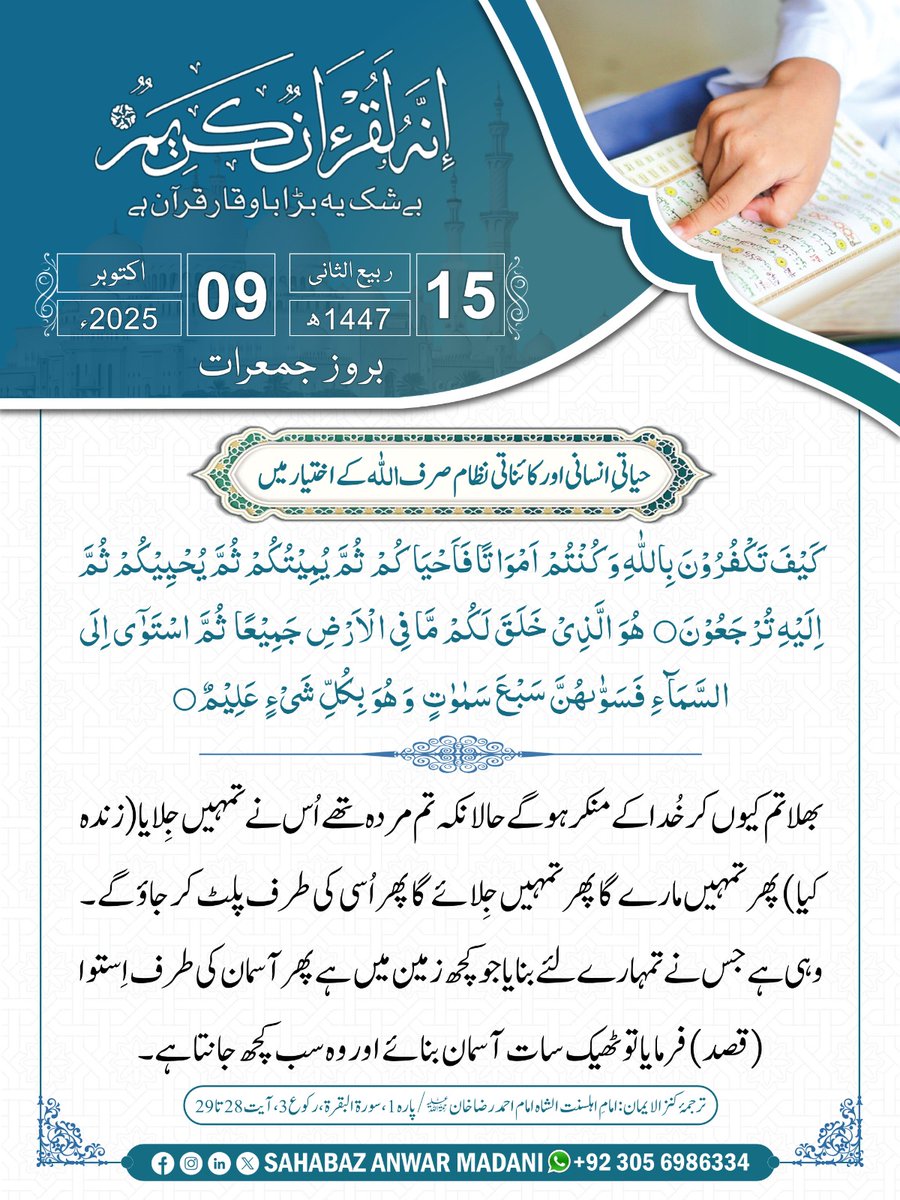 اِنَّهٗ لَقُرْاٰنٌ كَرِیْمٌ
بے شک یہ بڑا باوقار قرآن ہے
15 ربیع الثانی 1447ھ 09 اکتوبر 2025ء
بروز جمعرات
حیاتِ انسانی اور کائناتی نظام صرف اللہ کے اختیار میں
كَیْفَ تَكْفُرُوْنَ بِاللّٰهِ وَ كُنْتُمْ اَمْوَاتًا فَاَحْیَاكُمْ ثُمَّ یُمِیْتُكُمْ ثُمَّ یُحْیِیْكُمْ ثُمَّ
اِلَیْهِ تُرْجَعُوْنَ○ هُوَ الَّذِیْ خَلَقَ لَكُمْ مَّا فِی الْاَرْضِ جَمِیْعًا ثُمَّ اسْتَوٰۤى اِلَى
السَّمَآءِ فَسَوّٰىهُنَّ سَبْعَ سَمٰوٰتٍ وَ هُوَ بِكُلِّ شَیْءٍ عَلِیْمٌ○
بھلا تم کیوں کر خُدا کے منکر ہو گے حالانکہ تم مردہ تھے اُس نے تمہیں جِلایا (زندہ
کیا) پھر تمہیں مارے گا پھر تمہیں جِلائے گا پھر اُسی کی طرف پلٹ کر جاؤ گے۔
وہی ہے جس نے تمہارے لئے بنایا جو کچھ زمین میں ہے پھر آسمان کی طرف اِستوا
(قصد) فرمایا تو ٹھیک سات آسمان بنائے اور وہ سب کچھ جانتا ہے۔
ترجمۂ کنز الایمان: امامِ اہلسنت الشاہ امام احمد رضا خان / پارہ 1، سورۃ البقرۃ، رکوع 3، آیت 28 تا 29
SAHABAZ ANWAR MADANI +92 305 6986334